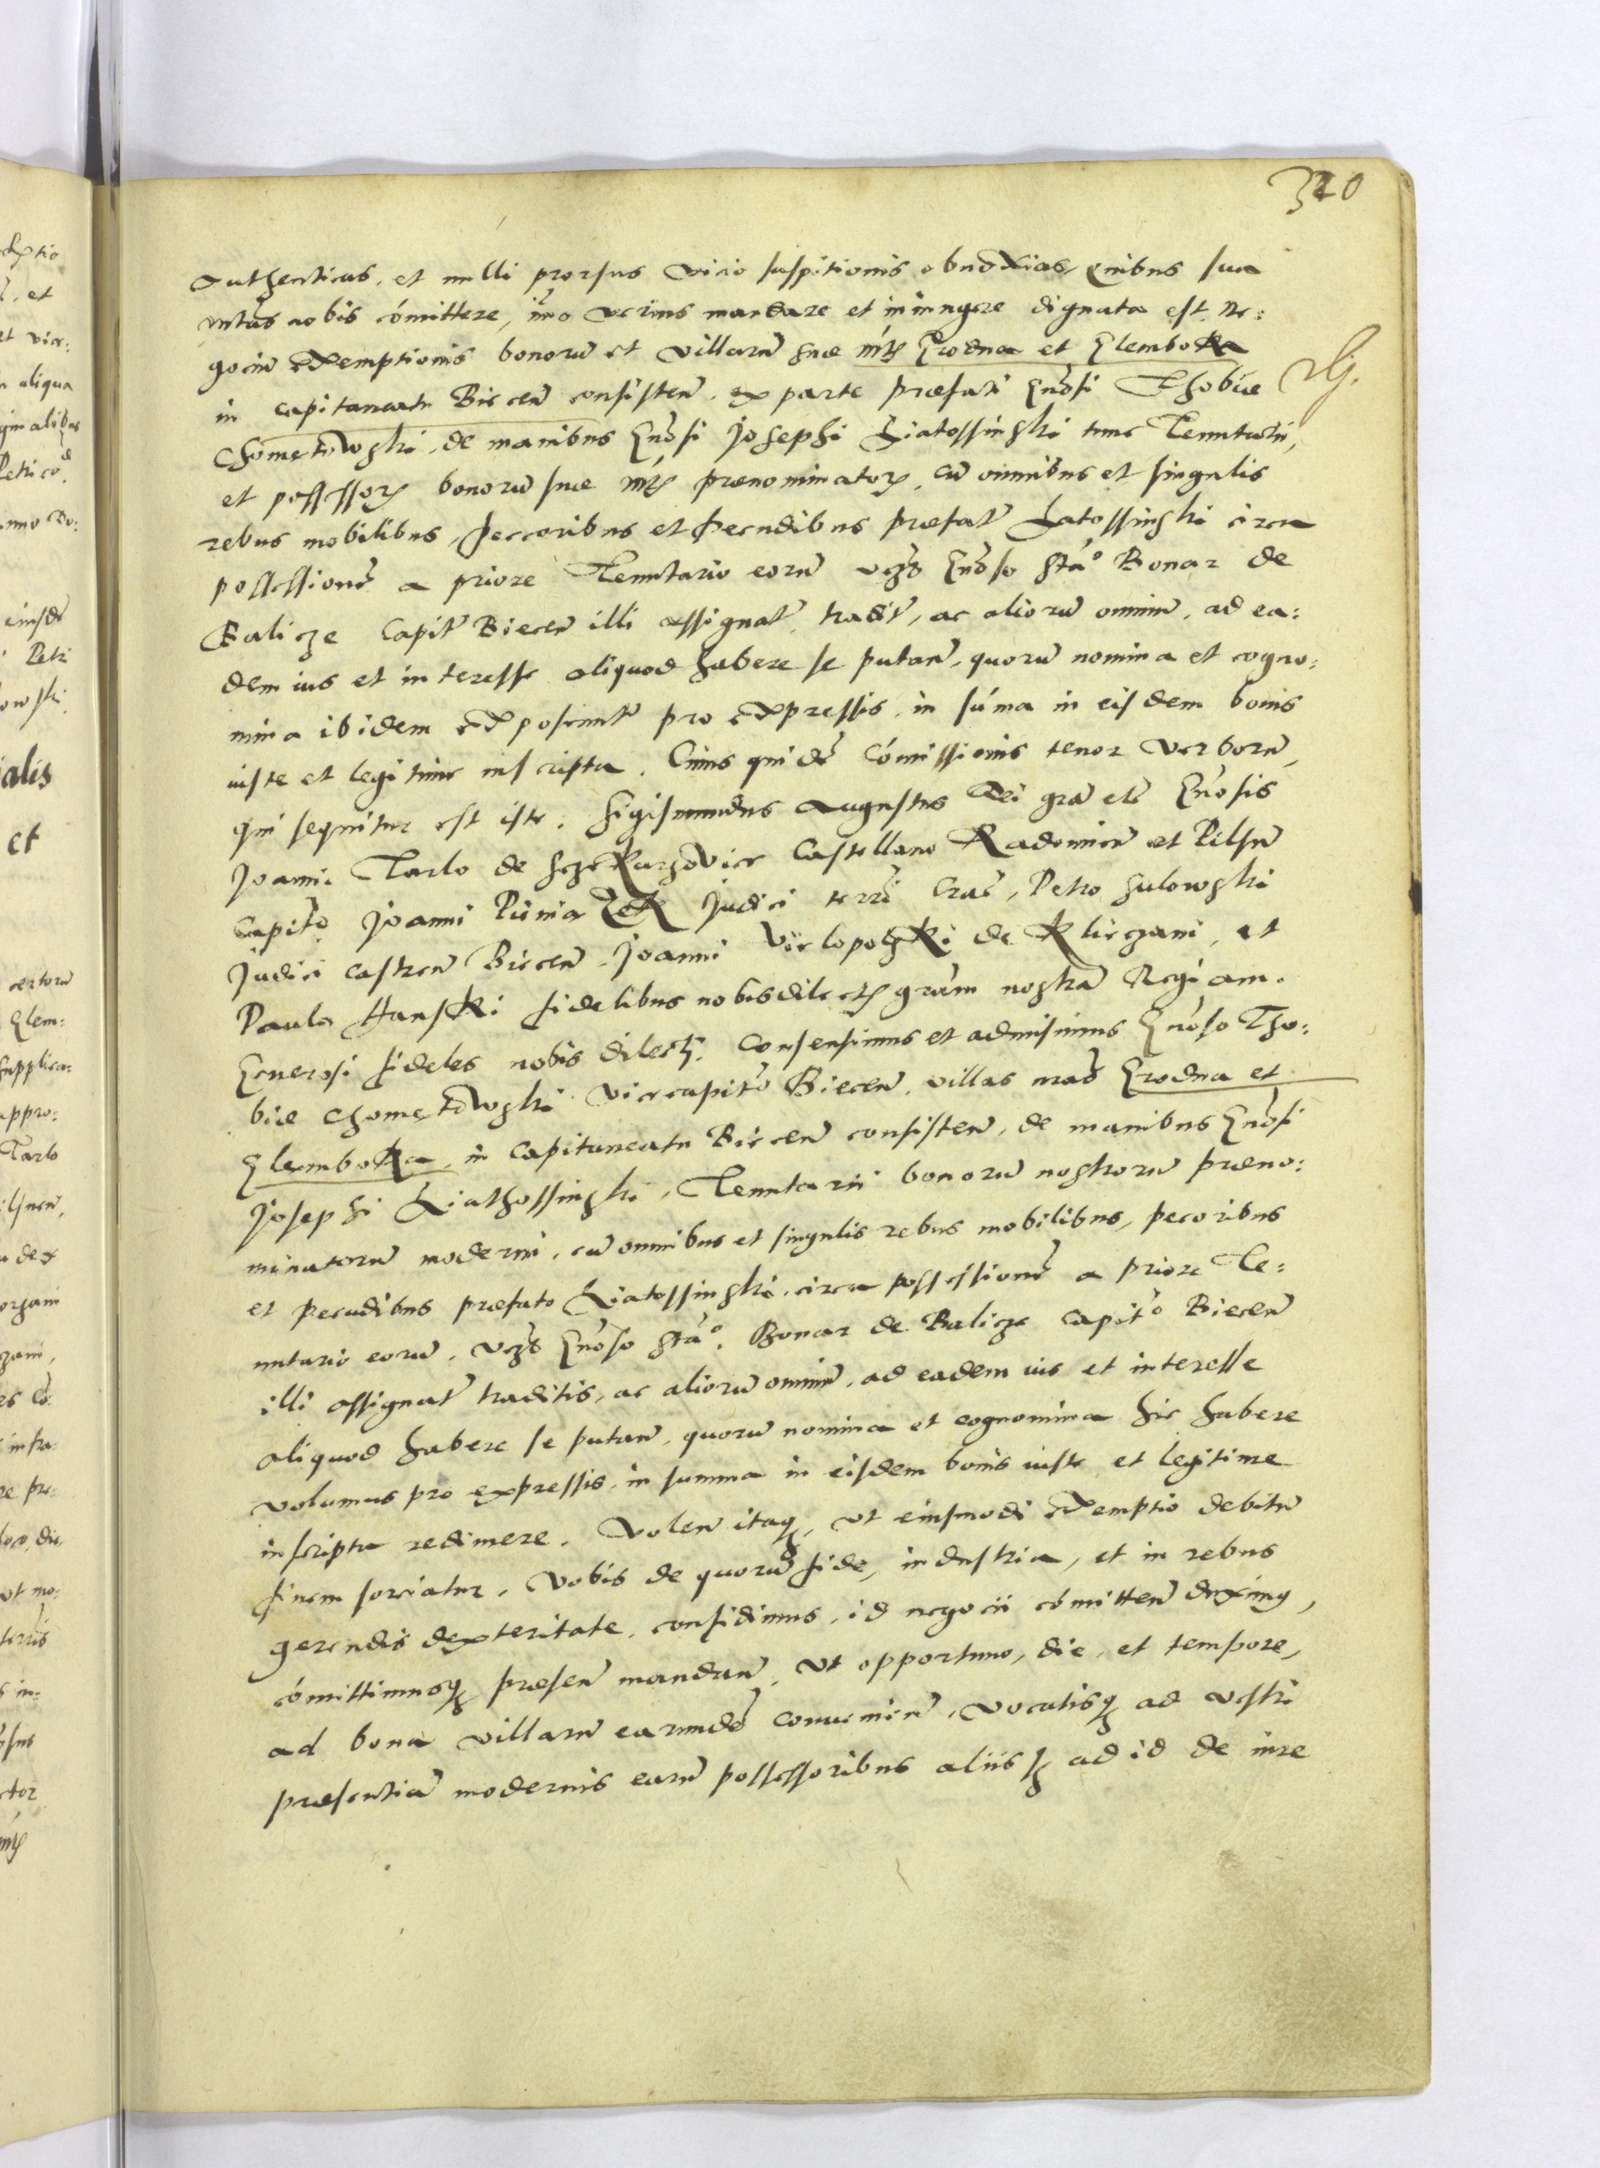 320
authenticas, et nulli prorsus vicio suspitionis obnoxias, quibus sua
mtas nobis comittere, imo verius mandare et iniungere dignata est. Ne:
gociu exemptionis bonoru et villaru suae mtis Grodna et Glemboka
in capitaneatu Biecen consisten. ex parte praefati Gnosi Thobiae
Chometowski, de manibus Gnosi Josephi Liatossinski tunc Tenutarii,
et possessoris bonoru suae mtis praenominatoru, cu omnibus et singulis
rebus mobilibus, Peccoribus et Pecudibus praefat Latossinski circa
possessione a priore Tenutario eoru vczs Gnoso Sta° Bonar de
Balicze Capit Biecen illi assignat, tradit, ac alioru omniu, ad ea:
dem ius et interesse aliquod habere se putan, quoru nomina et cogno:
mina ibidem exposcunt pro expressis, in suma in eisdem bonis
iuste et legitime inscripta. Cuius quide comissionis tenor verboru,
qui sequitur est iste. Sigismundus Augustus Dei gra etc Gnosis
Joanni Tarlo de Sczekarzovice Castellano Radomien et Pilsn
Capito, Joanni Pienia Zek Judici terrae Crac, Petro Sulowski
Judici castren Biecen, Joanni Vielopolski de Klieczani, et
Paulo Hanski fidelibus nobis dilectis gram nostra Regiam.
Generosi fideles nobis dilecti. Consensimus et admisimus Gnoso Tho:
biae Chometowski Vicecapito Biecen, villas nras Grodna et
Glemboka, in Capitaneatu Biecen consisten, de manibus Gnosi
Josephi Liathossinski, Tenutarii bonoru nostroru praeno:
minatoru moderni, cu omnibus et singulis rebus mobilibus, pecoribus
et Pecudibus praefato Liatossinski, circa possessione a priore Te:
nutario eoru, vczs Gnoso Sta°. Bonar de Balicze Capito Biecen
illi assignat traditis, ac alioru omniu, ad eadem ius et interesse
aliquod habere se putan, quoru nomina et cognomina hic habere
volumus pro expressis, in summa in eisdem bonis iuste et legitime
inscripta redimere. Volen itaq, ut eiusmodi exemptio debitu
finem sorciatur. Vobis de quoru fide, industria, et in rebus
gerendis dexteritate, confidimus, id negocii comitten duximus,
comittimusq praesen mandan, ut opportuno, die, et tempore,
ad bona villaru earunde convenien, vocatisq ad vestri
praesentia modernis earu possessoribus aliisq ad id de iure